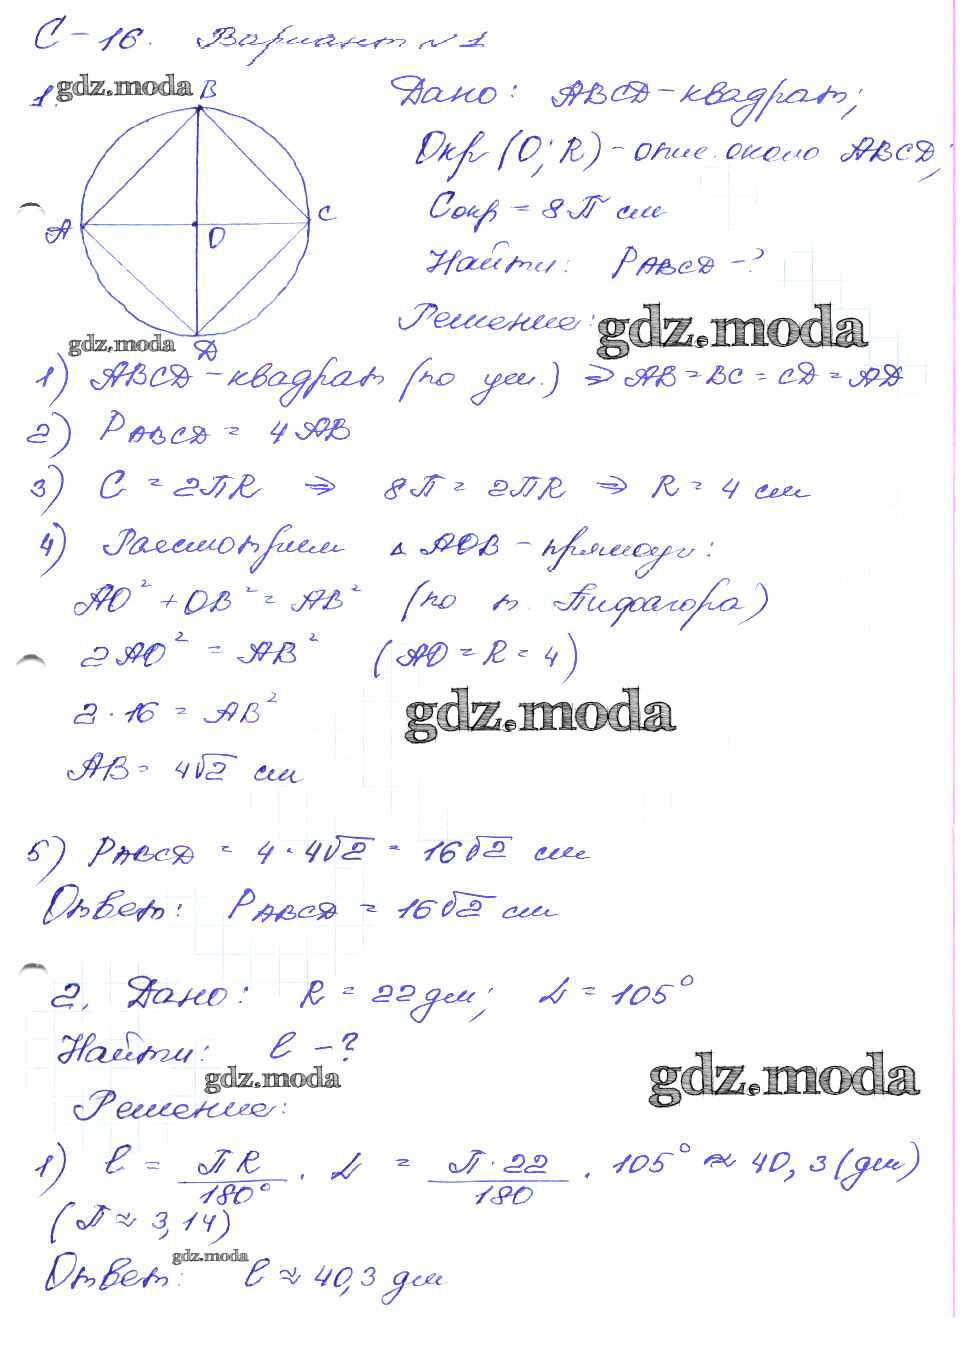 С-16. Вариант №1
1. gdz.moda B
Дано: ABCD-квадрат;
Окр (O; R) - опис. около ABCD;
Cокр = 8П см
A O C
Найти: PABCD -?
Решение: gdz.moda
gdz.moda D
1) ABCD-квадрат (по усл.) => AB = BC = CD = AD
2) PABCD = 4AB
3) C = 2ПR => 8П = 2ПR => R = 4 см
4) Рассмотрим ▵ AOB - прямоуг:
AO² + OB² = AB² (по т. Пифагора)
2AO² = AB² (AO = R = 4)
2 · 16 = AB²
gdz.moda
AB = 4√2 см
5) PABCD = 4 · 4√2 = 16√2 см
Ответ: PABCD = 16√2 см
2. Дано: R = 22 дм; α = 105°
Найти: l -?
gdz.moda gdz.moda
Решение:
1) l = ПR/180° · α = П·22/180 · 105° ≈ 40,3 (дм)
(П ≈ 3,14)
gdz.moda
Ответ: l ≈ 40,3 дм